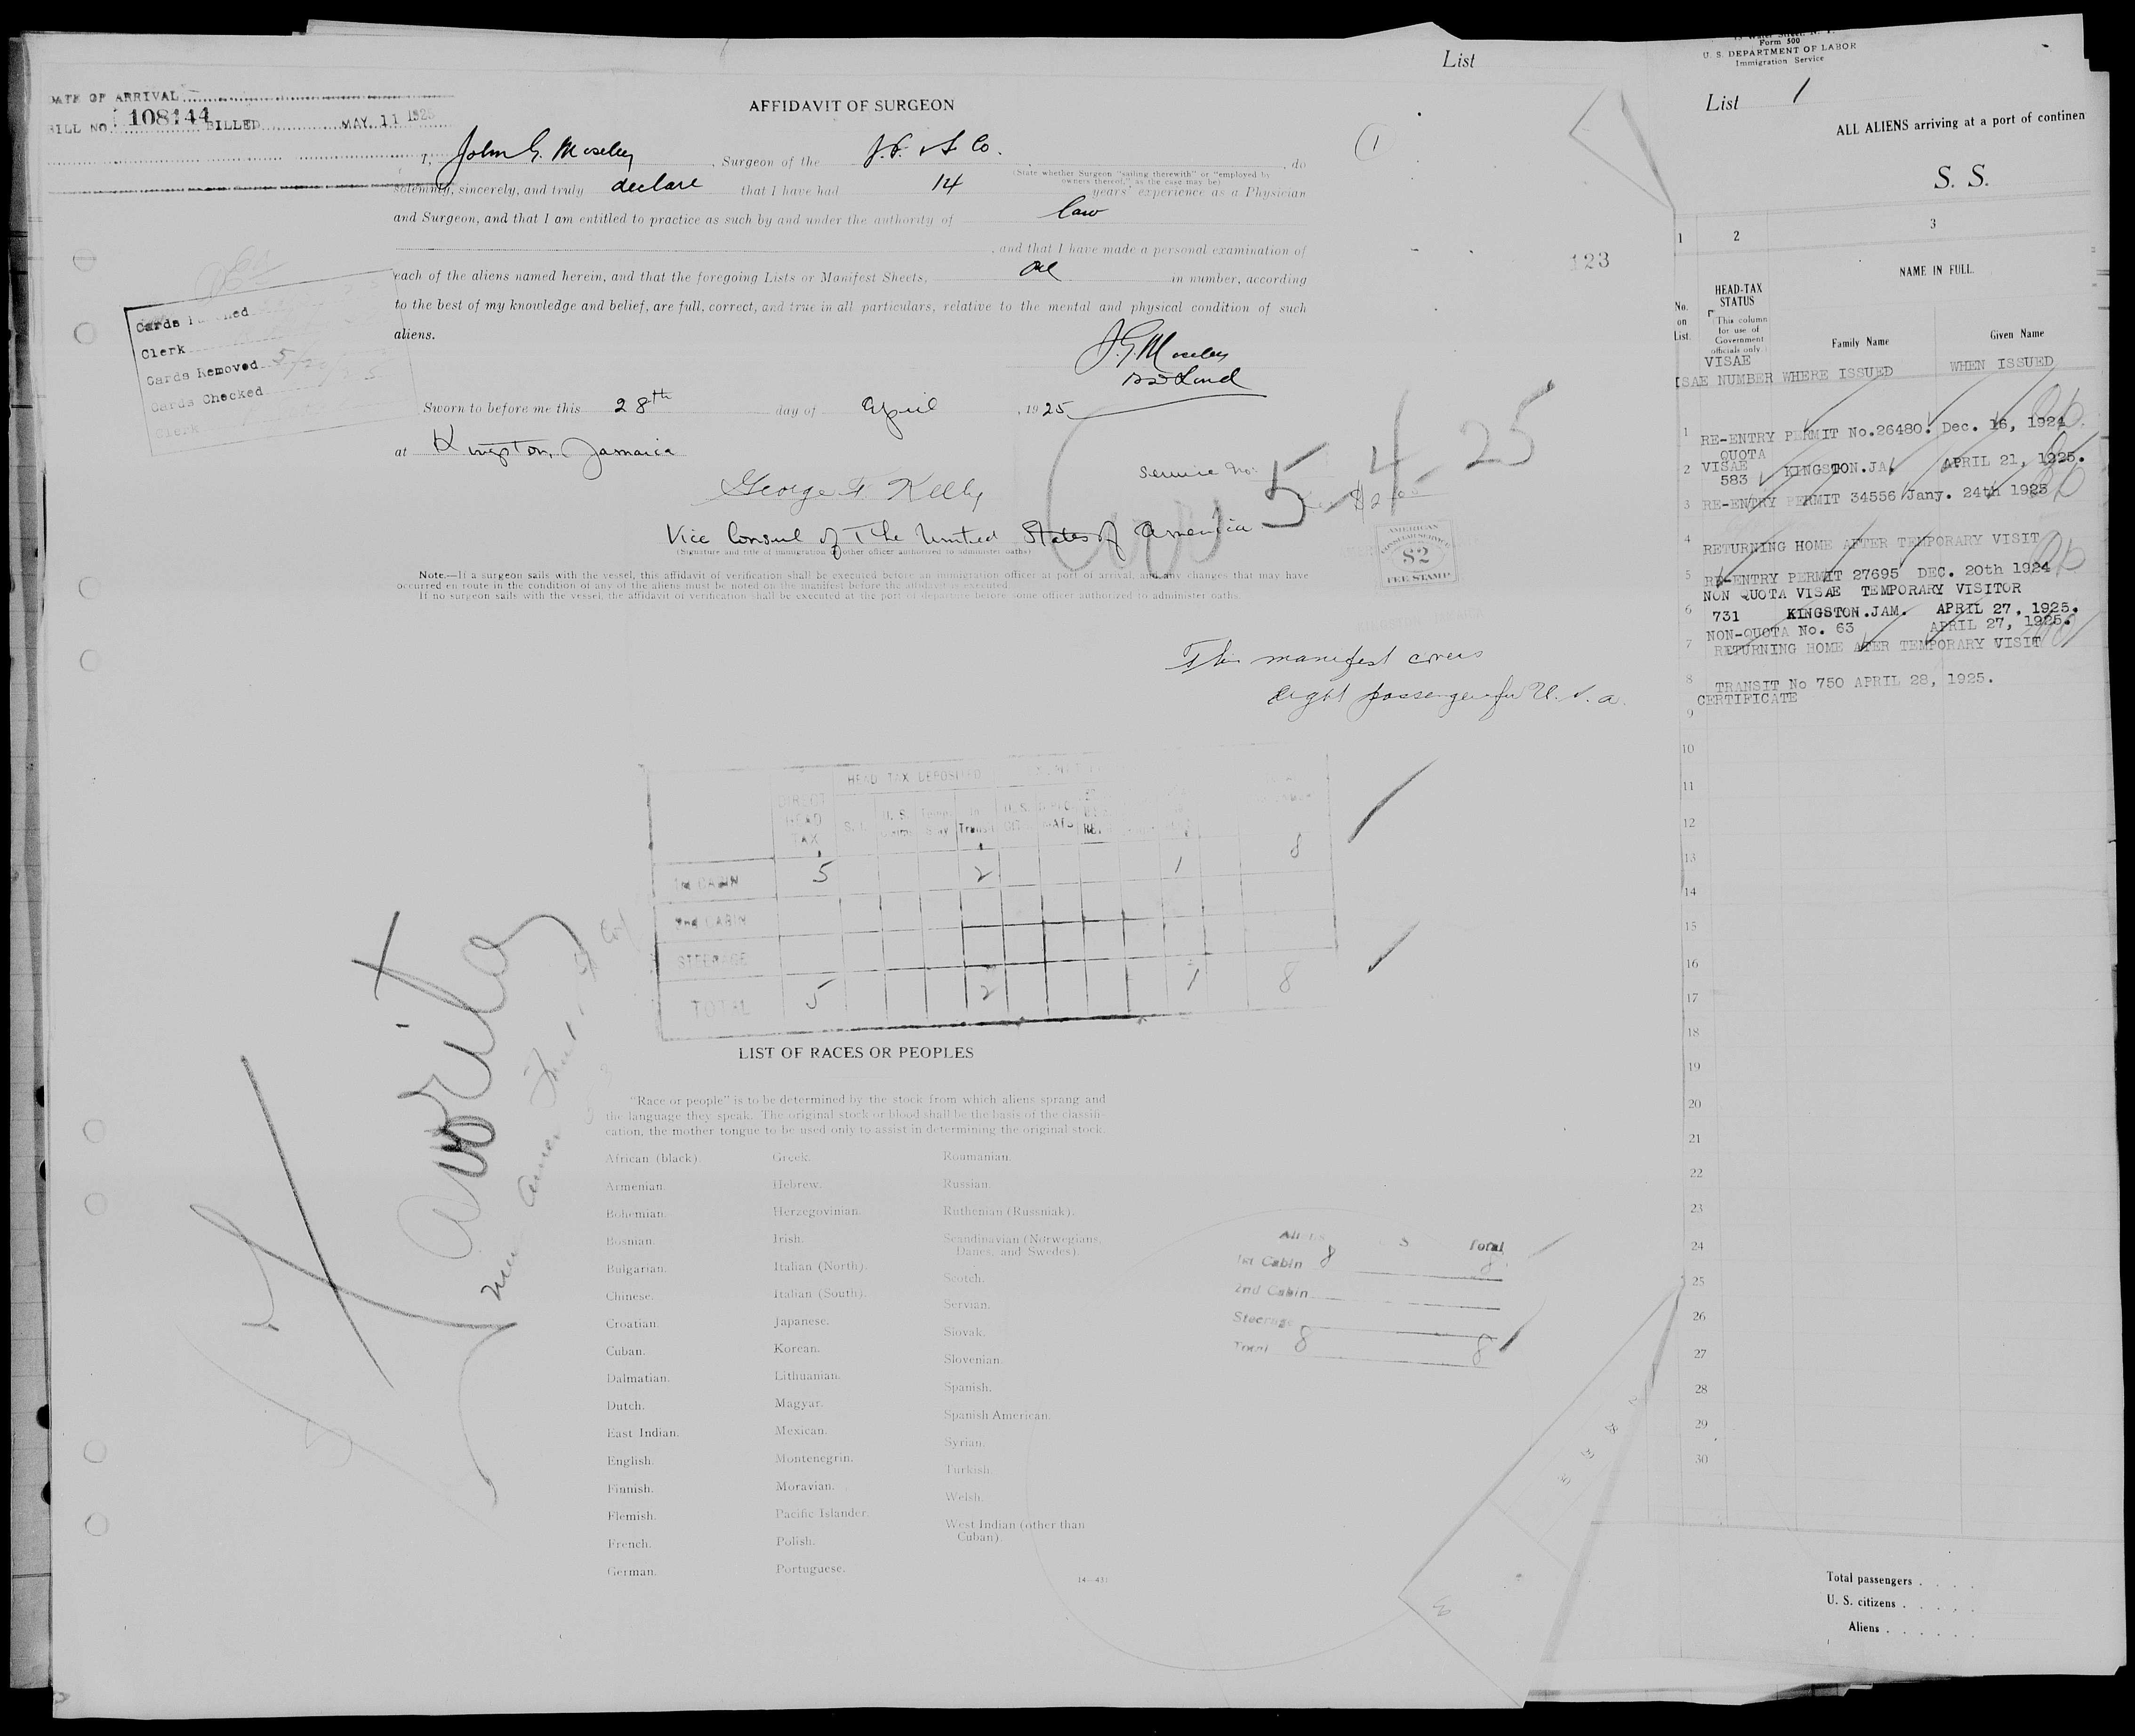 List
DATE OF ARRIVAL
BILL NO. 108144 BILLED MAY 11 1925
AFFIDAVIT OF SURGEON
1
I, John G. Moseley, Surgeon of the Co., do
(State whether Surgeon "sailing therewith" or "employed by
owners thereof," as the case may be)
solemnly, sincerely, and truly declare that I have had 14 years' experience as a Physician
and Surgeon, and that I am entitled to practice as such by and under the authority of law
, and that I have made a personal examination of
each of the aliens named herein, and that the foregoing Lists or Manifest Sheets, one in number, according
to the best of my knowledge and belief, are full, correct, and true in all particulars, relative to the mental and physical condition of such
aliens.
123
J G Moseley
Cards
Clerk
Cards Removed 5/20/25
Cards Checked
Clerk
Sworn to before me this 28th day of April, 1925
at Kingston, Jamaica
George F Kelly
Service No.
5-4-25
$2.00
Vice Consul of The United States of America
(Signature and title of immigration or other officer authorized to administer oaths)
AMERICAN
CONSULAR SERVICE
$2
FEE STAMP
KINGSTON JAMAICA
Note.—If a surgeon sails with the vessel, this affidavit of verification shall be executed before an immigration officer at port of arrival, and any changes that may have
occurred en route in the condition of any of the aliens must be noted on the manifest before the affidavit is executed.
If no surgeon sails with the vessel, the affidavit of verification shall be executed at the port of departure before some officer authorized to administer oaths.
This manifest covers
eight passengers for U.S.a.
HEAD TAX DEPOSITED
DIRECT HEAD TAX
U. S.
In Transit
1st CABIN 5 2 1 8
2nd CABIN
STEERAGE
TOTAL 5 2 1 8
LIST OF RACES OR PEOPLES
"Race or people" is to be determined by the stock from which aliens sprang and
the language they speak. The original stock or blood shall be the basis of the classifi-
cation, the mother tongue to be used only to assist in determining the original stock.
African (black).
Armenian.
Bohemian.
Bosnian.
Bulgarian.
Chinese.
Croatian.
Cuban.
Dalmatian.
Dutch.
East Indian.
English.
Finnish.
Flemish.
French.
German.
Greek.
Hebrew.
Herzegovinian.
Irish.
Italian (North).
Italian (South).
Japanese.
Korean.
Lithuanian.
Magyar.
Mexican.
Montenegrin.
Moravian.
Pacific Islander.
Polish.
Portuguese.
Roumanian.
Russian.
Ruthenian (Russniak).
Scandinavian (Norwegians,
Danes, and Swedes).
Scotch.
Servian.
Slovak.
Slovenian.
Spanish.
Spanish American.
Syrian.
Turkish.
Welsh.
West Indian (other than
Cuban).
14—431
Favorita
Total
1st Cabin 8 8
2nd Cabin
Steerage
Total 8 8
Form 500
U. S. DEPARTMENT OF LABOR
Immigration Service
List 1
ALL ALIENS arriving at a port of continen
S. S.
1 2 3
No.
on
List.
HEAD-TAX
STATUS
(This column
for use of
Government
officials only.)
NAME IN FULL.
Family Name Given Name
VISAE
ISAE NUMBER WHERE ISSUED WHEN ISSUED
1 RE-ENTRY PERMIT No.26480. Dec. 16, 1924
QUOTA
2 VISAE KINGSTON.JA. APRIL 21, 1925.
583
3 RE-ENTRY PERMIT 34556 Jany. 24th 1925
4 RETURNING HOME AFTER TEMPORARY VISIT
5 RE-ENTRY PERMIT 27695 DEC. 20th 1924
NON QUOTA VISAE TEMPORARY VISITOR
6 731 KINGSTON.JAM. APRIL 27, 1925.
NON-QUOTA No. 63 APRIL 27, 1925.
7 RETURNING HOME ATER TEMPORARY VISIT
8 TRANSIT No 750 APRIL 28, 1925.
CERTIFICATE
9
10
11
12
13
14
15
16
17
18
19
20
21
22
23
24
25
26
27
28
29
30
Total passengers . . . .
U. S. citizens . . . . .
Aliens . . . . . .